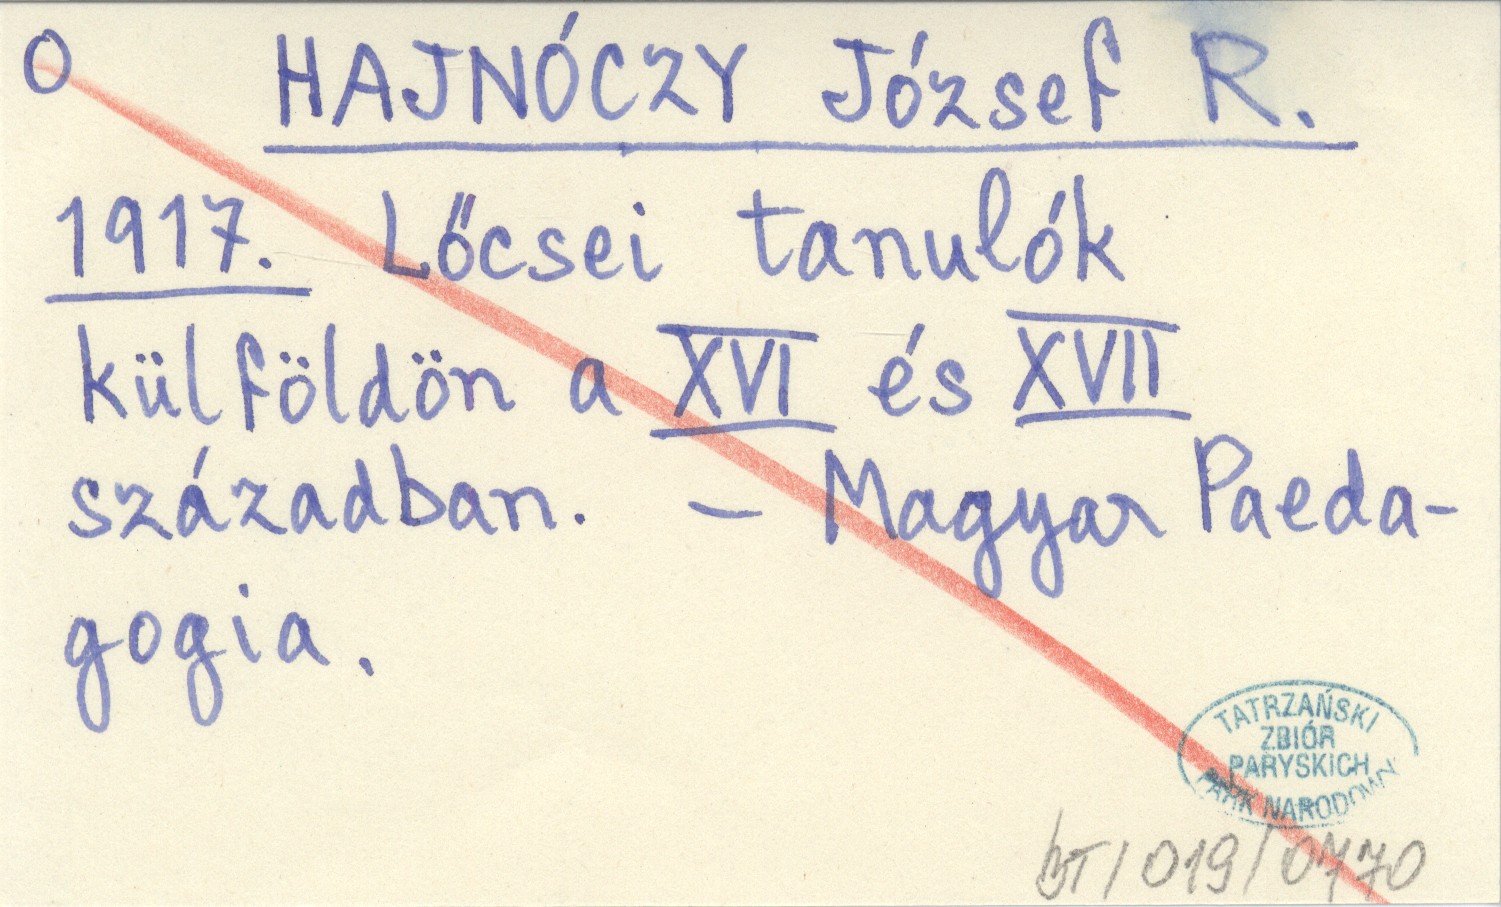 O HAJNÓCZY József R.
1917. Lőcsei tanulók
külföldön a XVI és XVII
században. – Magyar Paeda-
gogia.
TATRZAŃSKI
ZBIÓR
PARYSKICH
PARK NARODOWY
BT/019/0770